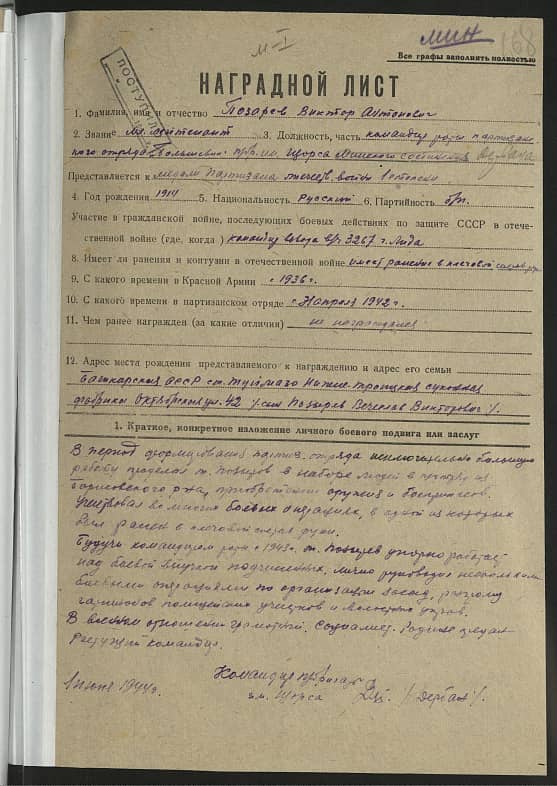 М-I
МИН
168
Все графы заполнить полностью
ПОСТУПИЛ
НАГРАДНОЙ ЛИСТ
1. Фамилия, имя и отчество Позарев Виктор Антонович
2. Звание мл. лейтенант 3. Должность, часть командир роты партизанс-
кого отряда Большевик им. Щорса Минского соединения
Представляется к медали Партизана отечеств. войны I степени
4. Год рождения 1914 5. Национальность Русский 6. Партийность б/п.
Участие в гражданской войне, последующих боевых действиях по защите СССР в отече-
ственной войне (где, когда) командир взвода в/ч 3267 г. Лида
8. Имеет ли ранения и контузии в отечественной войне имеет ранение в плечевой сустав
9. С какого времени в Красной Армии с 1936 г.
10. С какого времени в партизанском отряде с 1 апреля 1942 г.
11. Чем ранее награжден (за какие отличия) не награждался
12. Адрес места рождения представляемого к награждению и адрес его семьи
Башкирская АССР ст. Туймаза Нижне-Троицкая суконная
фабрика Октябрьская ул. 42 /сын Позырев Вечеслав Викторович/.
1. Краткое, конкретное изложение личного боевого подвига или заслуг
В период формирования партиз. отряда исключительно большую
работу проделал т. Позырев в наборе людей в отряд из
Борисовского р-на, приобретении оружия и боеприпасов.
Участвовал во многих боевых операциях, в одной из которых
был ранен в плечевой сустав руки.
Будучи командиром роты с 1943 г. т. Позырев упорно работает
над боевой выучкой подчиненных, лично руководил несколькими
боевыми операциями по организации засад, разгрому
гарнизонов полицейских участков и волостных управ.
В военном отношении грамотный. Социалист. Родине предан
Растущий командир.
Командир п/бригады
им. Щорса /Дербан/.
1 июня 1944 г.